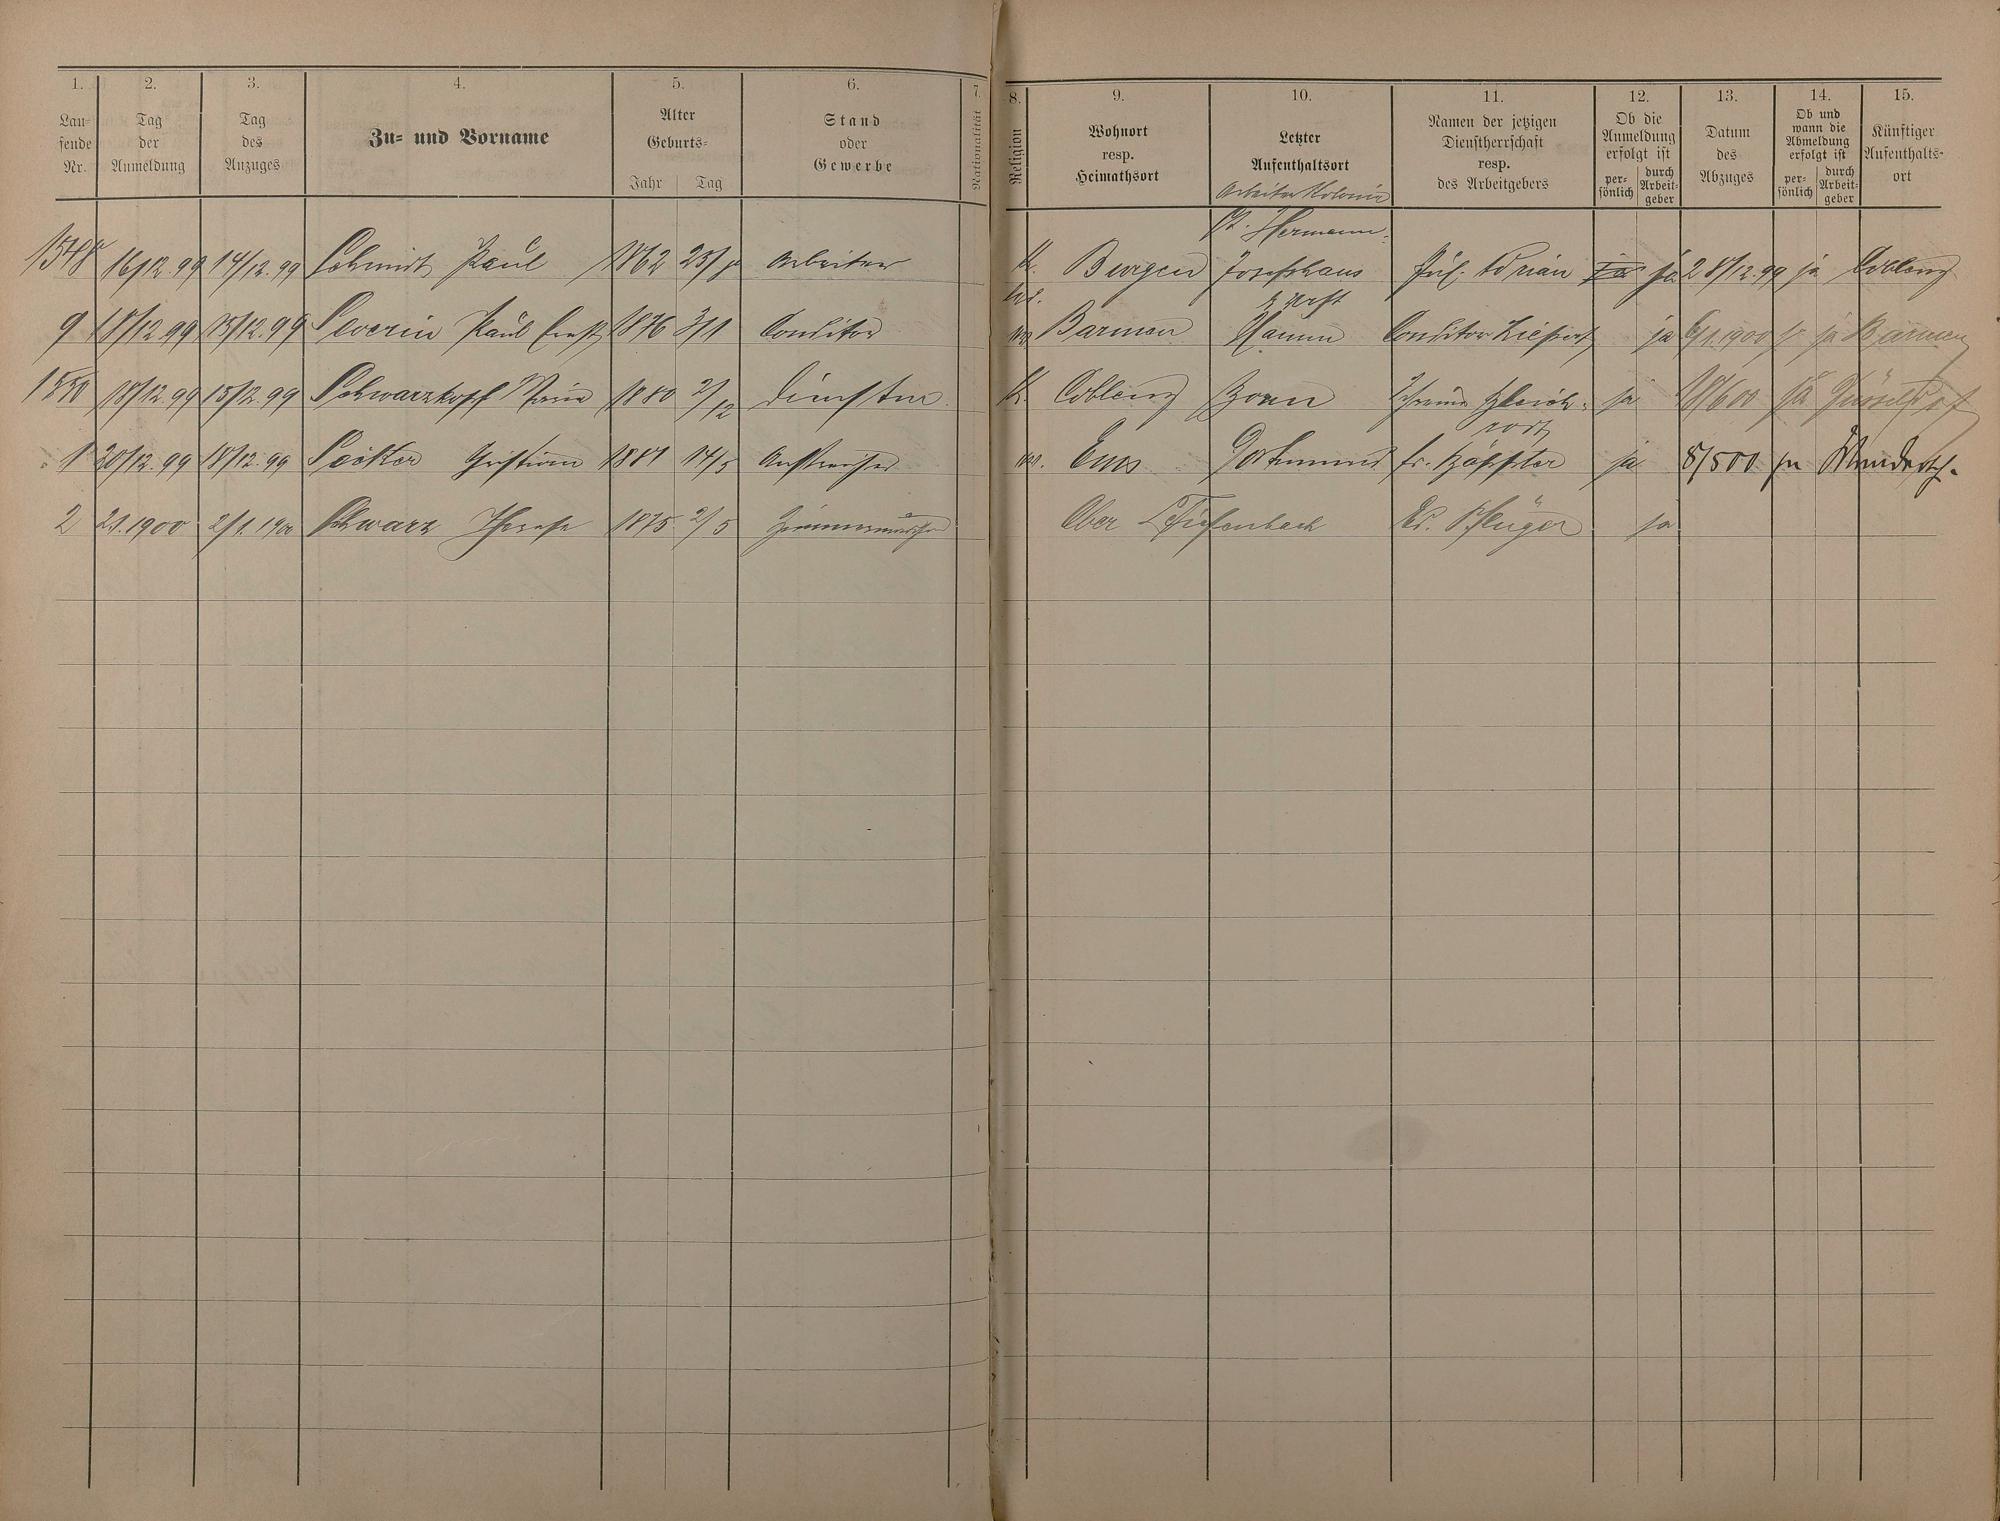 1. 2. 3. 4. 5. 6. 7. 8. 9. 10. 11. 12. 13. 14. 15.
Lau-
fende
Nr.
Tag
der
Anmeldung
Tag
des
Anzuges
Zu- und Vorname
Alter
Geburts-
Jahr Tag
Stand
oder
Gewerbe
Nationalität
Religion
Wohnort
resp.
Heimathsort
Letzter
Aufenthaltsort
Namen der jetzigen
Dienstherrschaft
resp.
des Arbeitgebers
Ob die
Anmeldung
erfolgt ist
per-
sönlich
durch
Arbeit-
geber
Datum
des
Abzuges
Ob und
wann die
Abmeldung
erfolgt ist
per-
sönlich
durch
Arbeit-
geber
Künftiger
Aufenthalts-
ort
Arbeiter Kolonie
St. Hermann-
1548 16/12.99 14/12.99 Schmidt Paul 1862 Arbeiter K. Burgen Josefshaus Adrian ja 28/12.99 ja Coblenz
9 18/12.99 15/12.99 Severin Paul Ernst 1876 3/1 Conditor ev. Barmen Hamm Conditor ja 6/1.1900 ja Barmen
1550 18/12.99 15/12.99 Schwarzkopf Maria 1880 2/12 K. Coblenz Bonn ja 18/6 00 ja Düsseldorf
1 20/12.99 18/12.99 Christian 1881 14/5 Anstreicher ev. Ems Dortmund ja 8/5 00 ja
2 2.1.1900 2/1.1900 Schwarz Therese 1875 2/5 Zimmermädchen Ober Tiefenbach Pflüger ja